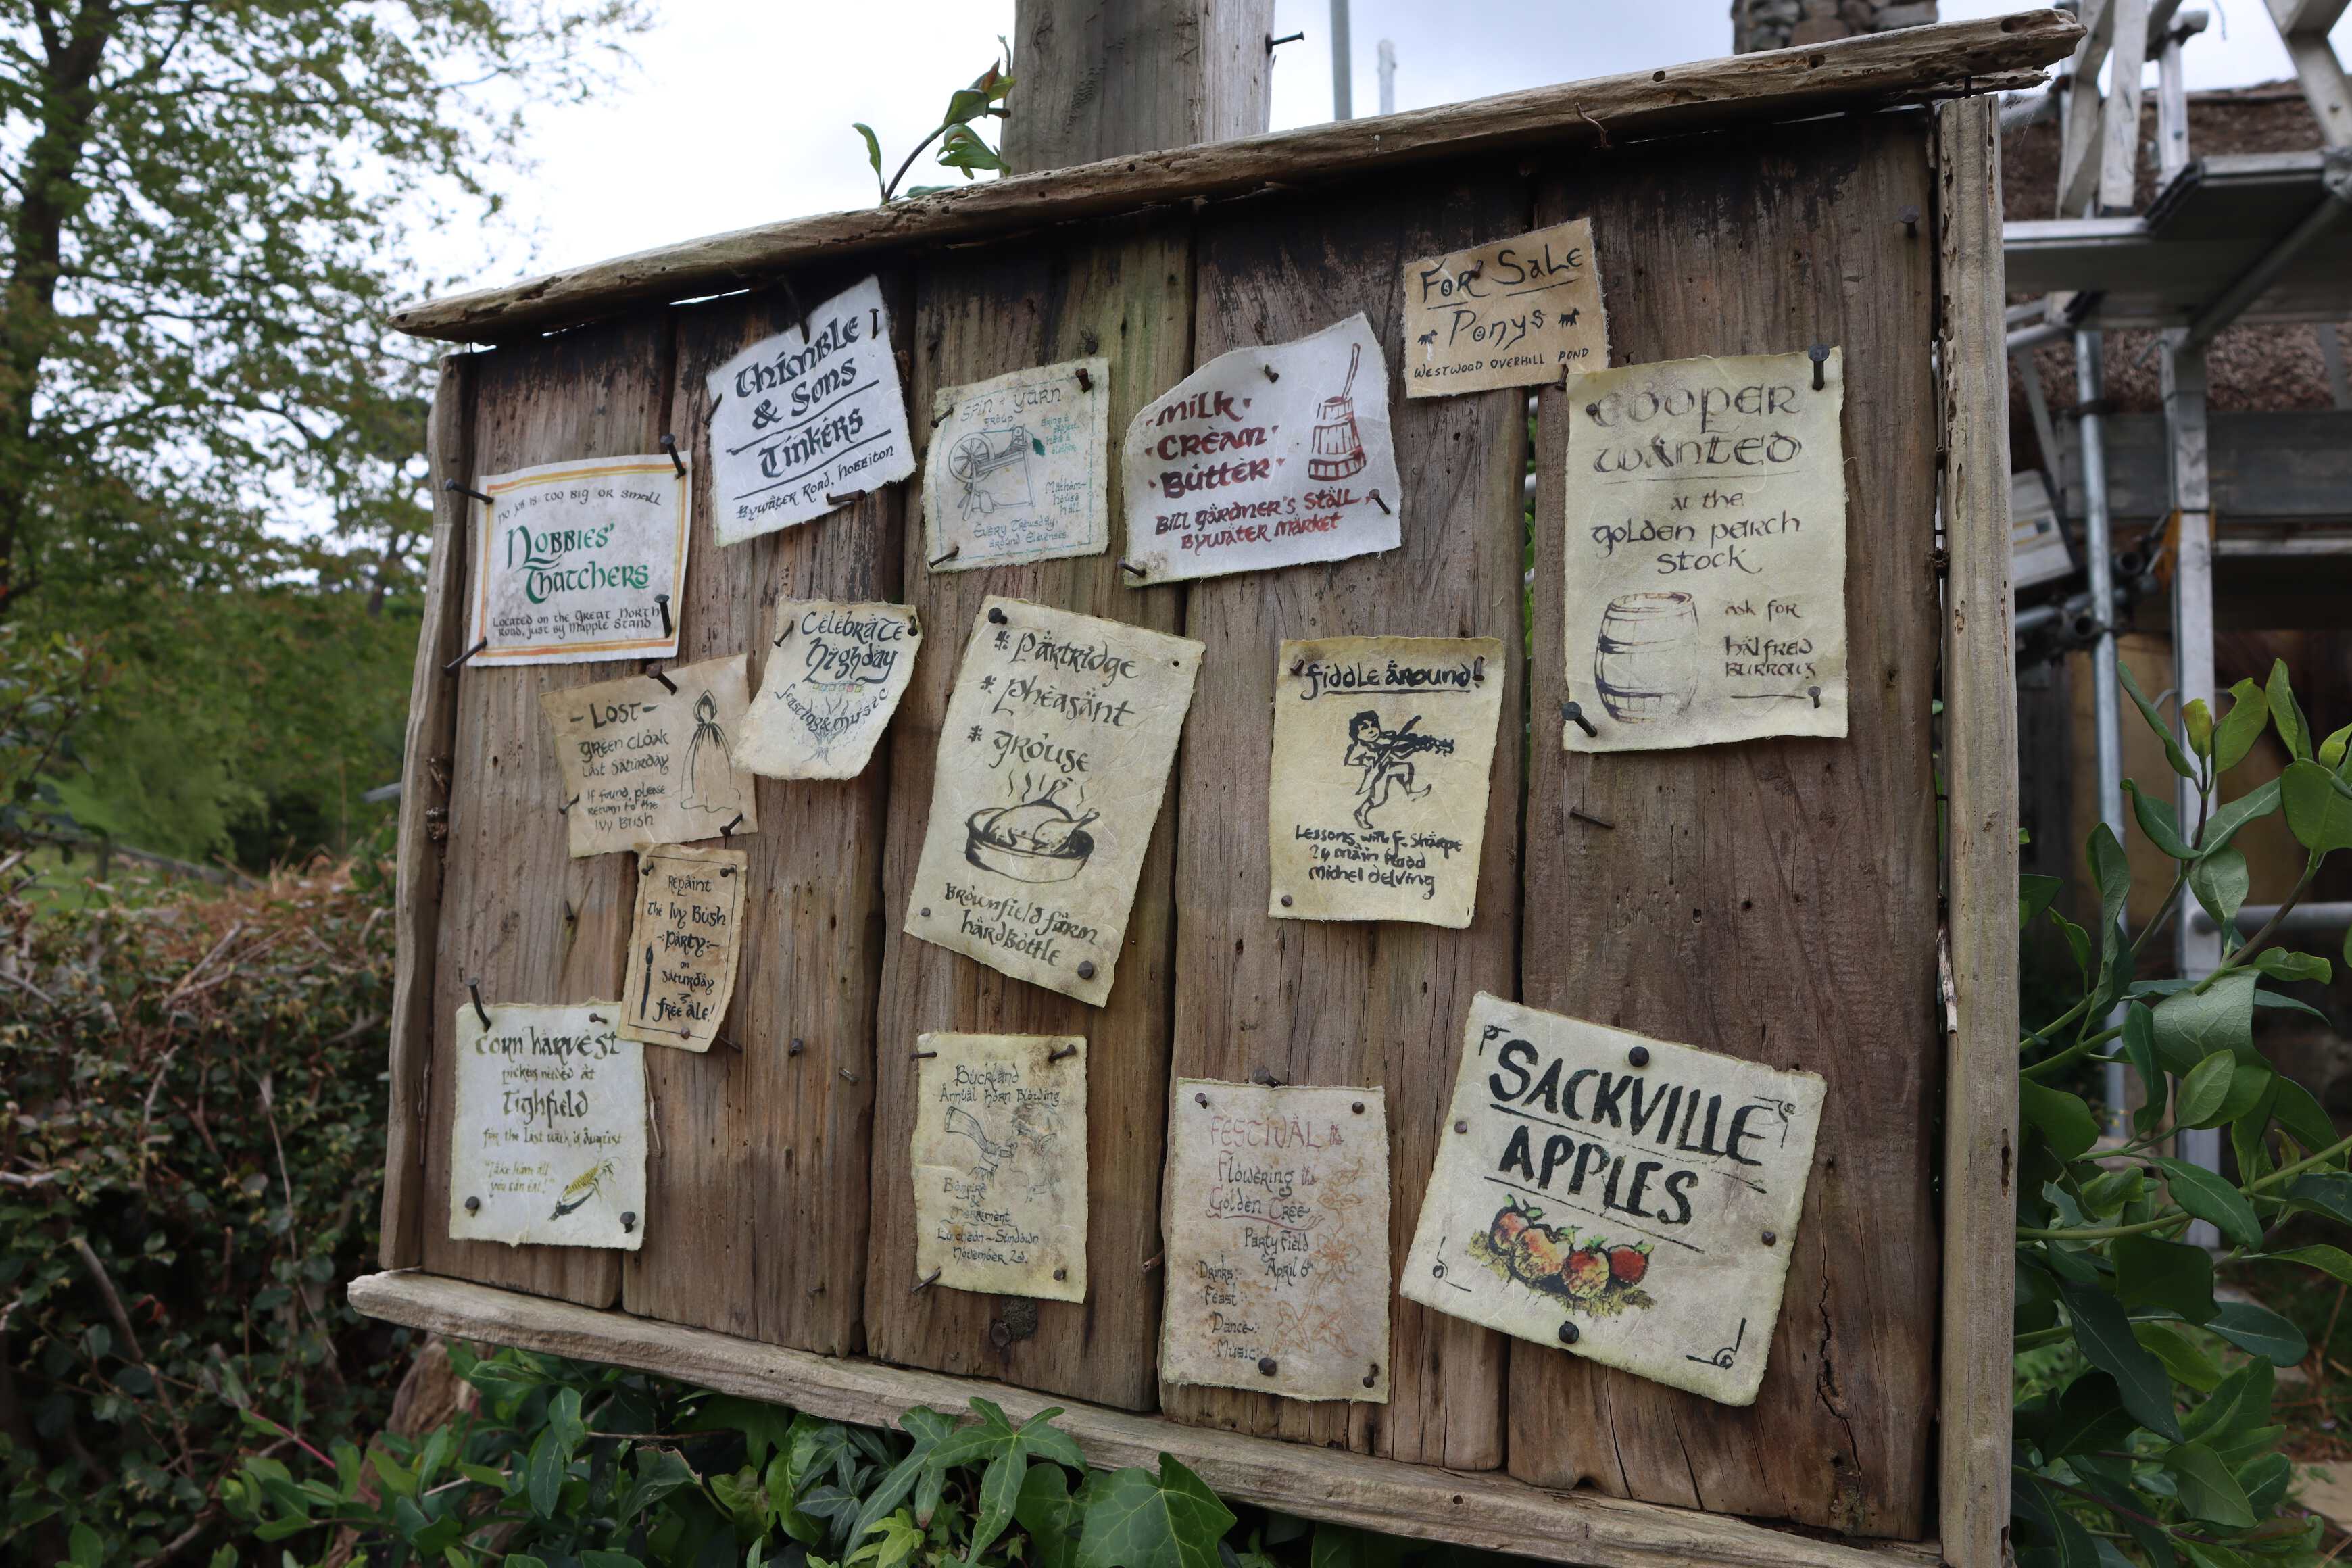 No job is too big or small
Nobbies'
Thatchers
Located on the Great North
Road, just by Mapple Stand
Thimble
& Sons
Tinkers
Bywater Road, Hobbiton
Spin + Yarn
Group
Mathom-
house
hall
Every Tewsday
around Elevenses
Milk
Cream
Butter
Bill Gardner's Stall
Bywater Market
For Sale
Ponys
Westwood Overhill Pond
Cooper
Wanted
at the
Golden Perch
Stock
ask for
Halfred
Burrows
- Lost -
Green Cloak
Last Saturday
If found, please
return to the
Ivy Bush
Celebrate
Highday
feasting & music
* Partridge
* Pheasant
* Grouse
Brownfield farm
hardbottle
fiddle around!
Lessons with F. Sharpe
24 Main Road
Michel Delving
Repaint
the Ivy Bush
- Party -
on
Saturday
free ale!
Corn harvest
pickers needed at
Tighfield
for the last week of August
"Take home all
you can eat."
Buckland
Annual Horn Blowing
Bonfire
&
merriment
Luncheon ~ Sundown
November 2nd.
Festival
Flowering
Golden Tree
Party Field
April 6th
Drinks
Feast
Dance
Music
Sackville
Apples